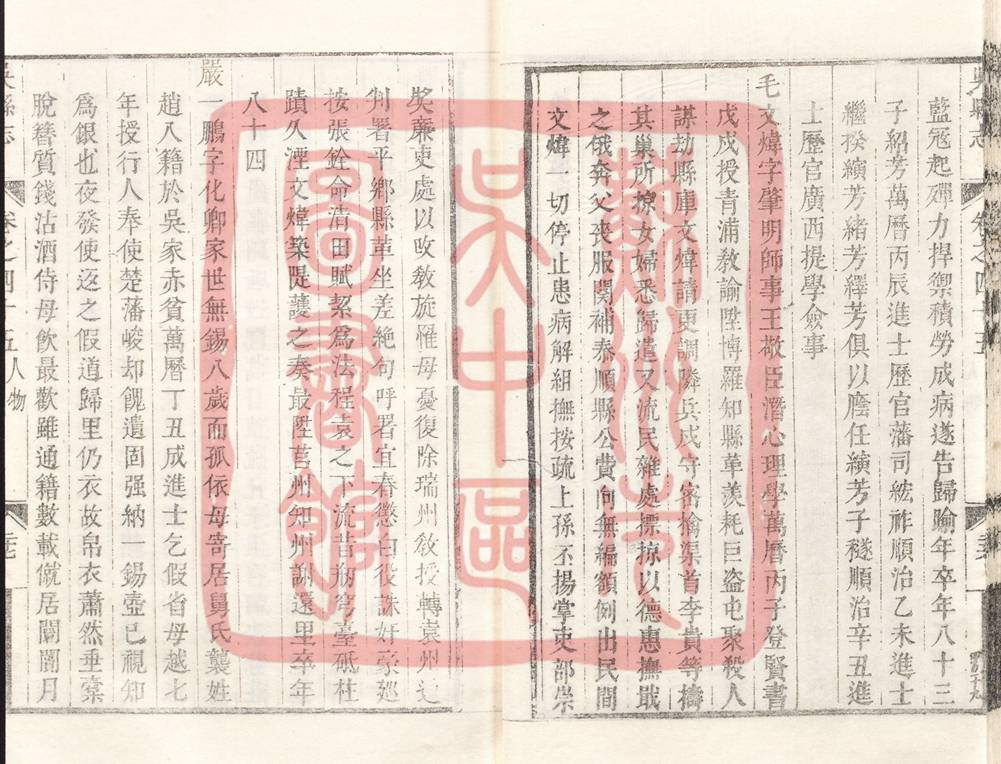 藍冦起殫力捍禦積勞成病遂告歸踰年卒年八十三
子紹芳萬曆丙辰進士歷官藩司紘祚順治乙未進士
繼揆繽芳緒芳繹芳俱以廕任繽芳子䆳順治辛丑進
士歷官廣西提學僉事
毛文煒字肇明師事王敬臣潛心理學萬曆丙子登賢書
戊戍授青浦敎諭陞博羅知縣革羨耗巨盗屯聚殺人
謀劫縣庫文煒請更調隣兵戍守密擒渠首李貴等擣
其巢所掠女婦悉歸遣又流民雜處摽掠以德惠撫戢
之俄奔父喪服闋補泰順縣公費向無編額例出民間
文煒一切停止患病解組撫按疏上孫丕揚掌吏部崇
奬廉吏處以攺敎旋罹母憂復除瑞州敎授轉袁州
判署平鄉縣革坐差絶句呼署宜春懲白役誅奸豪廵
按張銓命清田賦絜爲法程袁之下流昔砌穹臺砥柱
蹟久湮文煒築隄護之奏最陞莒州知州謝還里卒年
八十四
嚴一鵬字化卿家世無錫八歲而孤依母寄居舅氏襲姓
趙入籍於吳家赤貧萬曆丁丑成進士乞假省母越七
年授行人奉使楚藩峻却餽遺固强納一錫壺已視知
爲銀也夜發使返之假道歸里仍衣故帛衣蕭然垂橐
脫簪質錢沽酒侍母飲最歡雖通籍數載僦居闤闠月
吳縣志
卷之四十五 人物
蘇州市
吳中區
圖書館